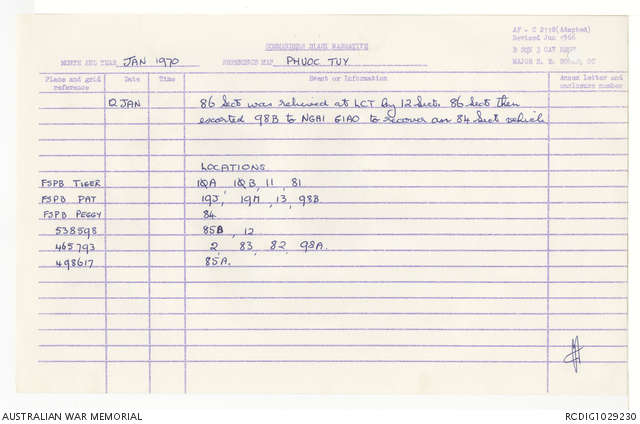 AF - C 2118(Adapted)
Revised Jun 1966
COMMANDERS DIARY NARRATIVE
B SQN 3 CAV REGT
MONTH AND YEAR JAN 1970 REFERENCE MAP PHUOC TUY
MAJOR OC
Place and grid reference Date Time Event or Information Annex letter and enclosure number
2 JAN 86 Sect was relieved at LCT by 12 Sect. 86 Sect then
escorted 98B to NGAI GIAO to recover an 84 Sect vehicle
LOCATIONS
FSPB TIGER 1QA, 1QB, 11, 81
FSPB PAT 19J, 19M, 13, 98B
FSPB PEGGY 84
538598 85B, 12
465793 2, 83, 82, 98A.
498617 85A.
AUSTRALIAN WAR MEMORIAL
RCDIG1029230